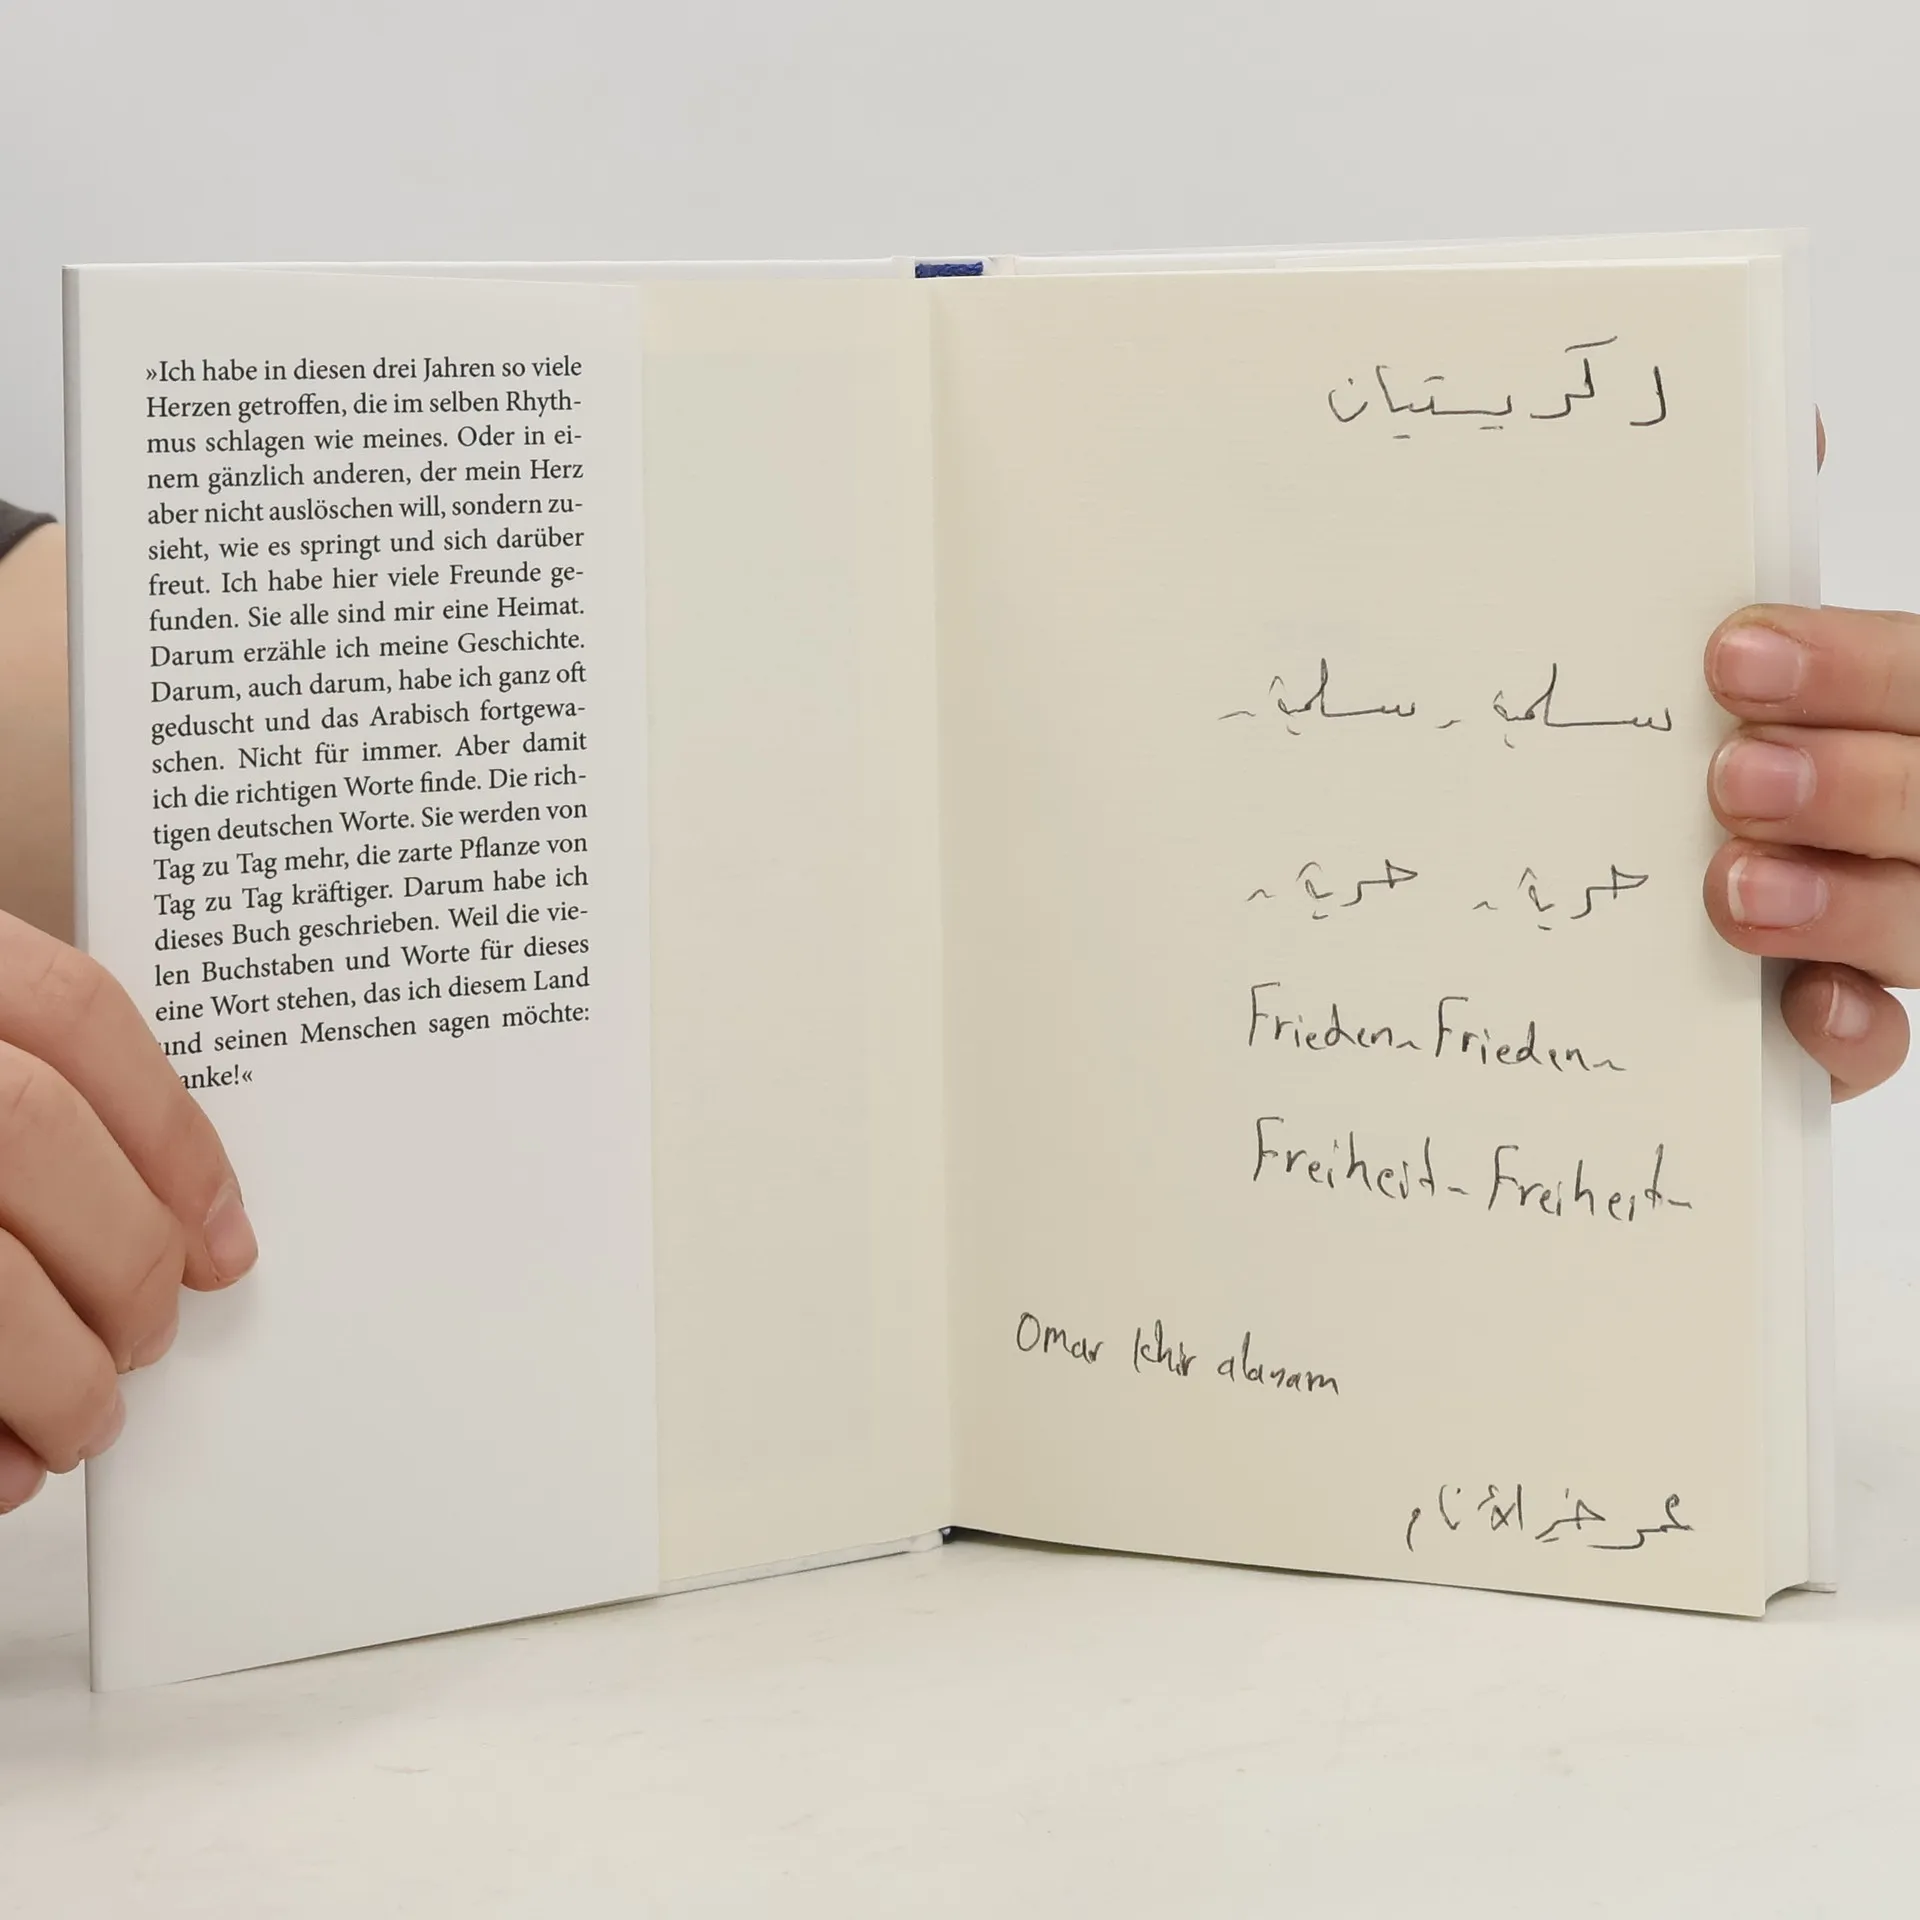 »Ich habe in diesen drei Jahren so viele
Herzen getroffen, die im selben Rhyth-
mus schlagen wie meines. Oder in ei-
nem gänzlich anderen, der mein Herz
aber nicht auslöschen will, sondern zu-
sieht, wie es springt und sich darüber
freut. Ich habe hier viele Freunde ge-
funden. Sie alle sind mir eine Heimat.
Darum erzähle ich meine Geschichte.
Darum, auch darum, habe ich ganz oft
geduscht und das Arabisch fortgewa-
schen. Nicht für immer. Aber damit
ich die richtigen Worte finde. Die rich-
tigen deutschen Worte. Sie werden von
Tag zu Tag mehr, die zarte Pflanze von
Tag zu Tag kräftiger. Darum habe ich
dieses Buch geschrieben. Weil die vie-
len Buchstaben und Worte für dieses
eine Wort stehen, das ich diesem Land
und seinen Menschen sagen möchte:
anke!«
ل كريستيان
سلمية - سلمية -
حرية - حرية -
Frieden - Frieden -
Freiheit - Freiheit -
Omar Khir alanam
عمر خير الأنام